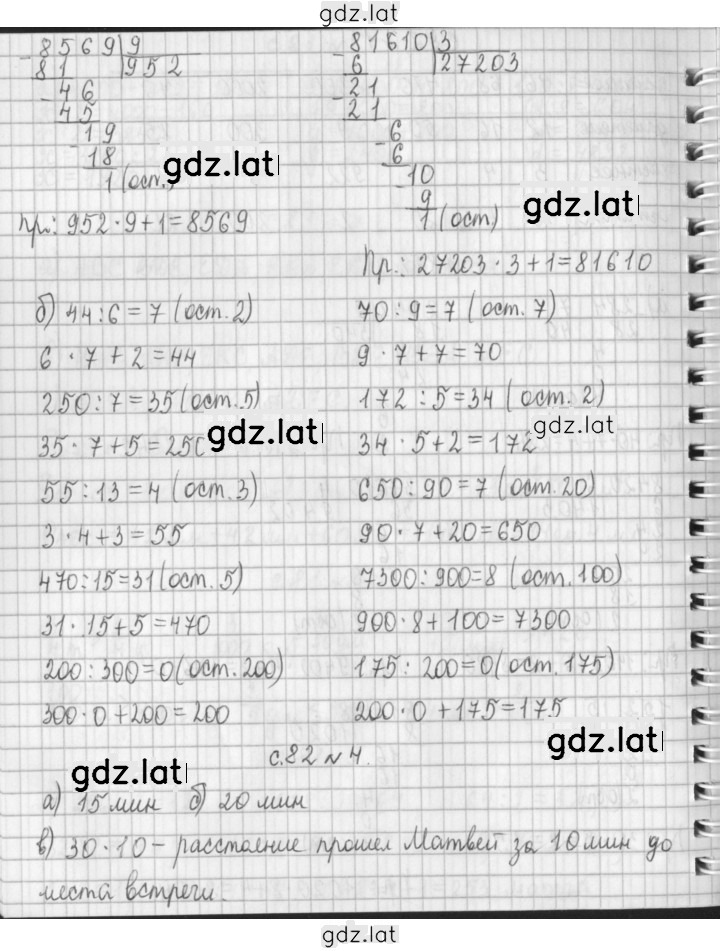 gdz.lat
8569 | 9
81 | 952
46
45
19
18
1 (ост.)
пр.: 952 · 9 + 1 = 8569
81610 | 3
6 | 27203
21
21
6
6
10
9
1 (ост)
Пр.: 27203 · 3 + 1 = 81610
gdz.lat
gdz.lat
б) 44 : 6 = 7 (ост. 2)
6 · 7 + 2 = 44
250 : 7 = 35 (ост. 5)
35 · 7 + 5 = 250
55 : 13 = 4 (ост. 3)
3 · 4 + 3 = 55
470 : 15 = 31 (ост. 5)
31 · 15 + 5 = 470
200 : 300 = 0 (ост. 200)
300 · 0 + 200 = 200
70 : 9 = 7 (ост. 7)
9 · 7 + 7 = 70
172 : 5 = 34 (ост. 2)
34 · 5 + 2 = 172
650 : 90 = 7 (ост. 20)
90 · 7 + 20 = 650
7300 : 900 = 8 (ост. 100)
900 · 8 + 100 = 7300
175 : 200 = 0 (ост. 175)
200 · 0 + 175 = 175
gdz.lat
gdz.lat
с. 82 № 4.
gdz.lat
gdz.lat
а) 15 мин б) 20 мин
в) 30 · 10 – расстояние прошел Матвей за 10 мин до
места встречи.
gdz.lat